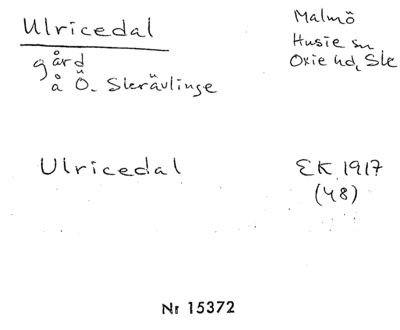 Ulricedal
gård
å Ö. Skrävlinge
Malmö
Husie sn
Oxie hd, Sk
Ulricedal
EK 1917
(48)
Nr 15372